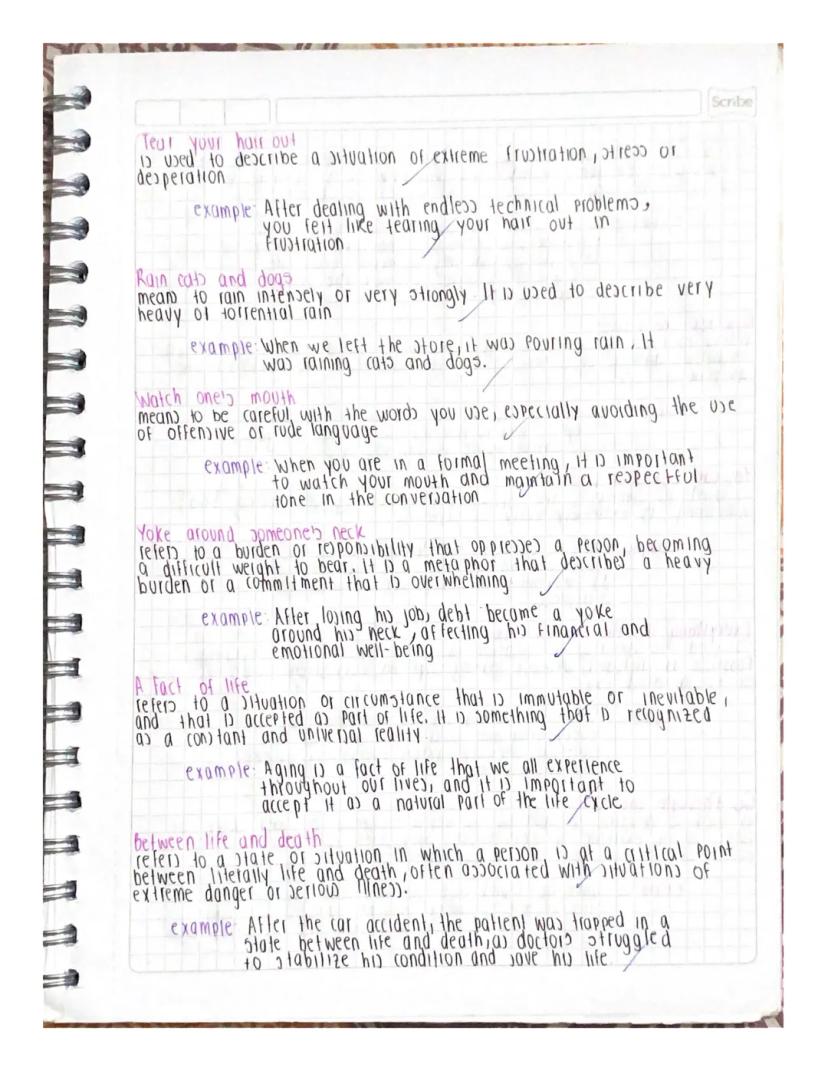 Scribe
Tear your hair out
is used to describe a situation of extreme frustration, stress or
desperation
example: After dealing with endless technical problems,
you felt like tearing your hair out in
frustration
Rain cats and dogs
means to rain intensely or very strongly It is used to describe very
heavy or torrential rain
example: When we left the store, it was pouring rain. It
was raining cats and dogs.
Watch one's mouth
means to be careful with the words you use, especially avoiding the use
of offensive or rude language
example: When you are in a formal meeting, it is important
to watch your mouth and maintain a respectful
tone in the conversation
Yoke around someone's neck
refers to a burden or responsibility that oppresses a person, becoming
a difficult weight to bear. It is a metaphor that describes a heavy
burden or a commitment that is overwhelming
example: After losing his job, debt became a yoke
around his neck, affecting his financial and
emotional well-being
A fact of life
refers to a situation or circumstance that is immutable or inevitable,
and that is accepted as part of life. It is something that is recognized
as a constant and universal reality.
example: Aging is a fact of life that we all experience
throughout our lives, and it is important to
accept it as a natural part of the life cycle
Between life and death
refers to a state or situation in which a person is at a critical point
between literally life and death, often associated with situations of
extreme danger or serious illness.
example: After the car accident, the patient was trapped in a
state between life and death, as doctors struggled
to stabilize his condition and save his life